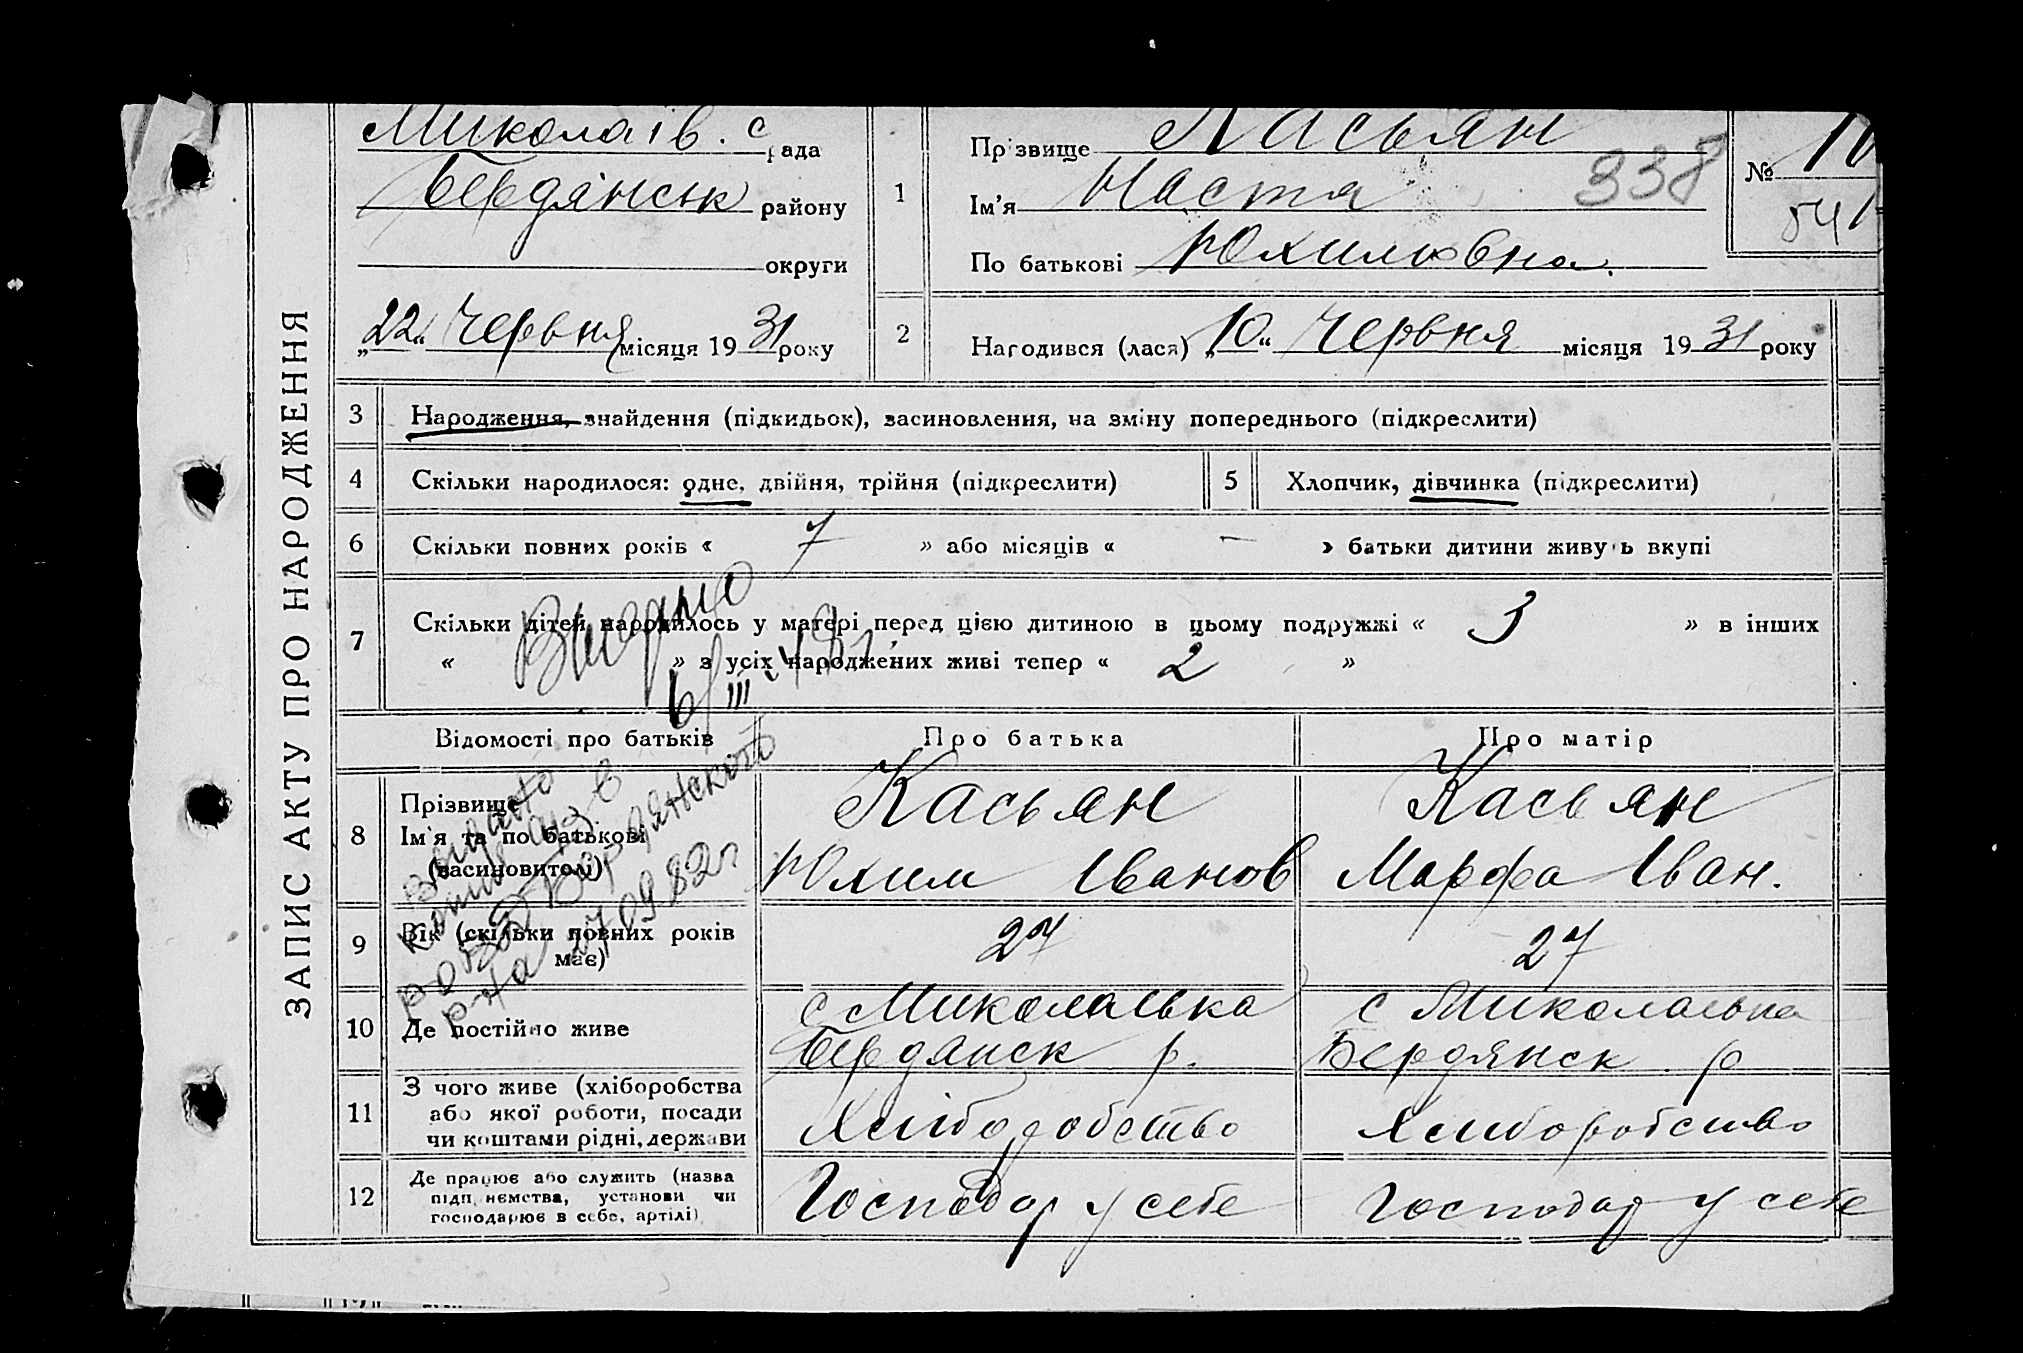 ЗАПИС АКТУ ПРО НАРОДЖЕННЯ
Миколаїв. с рада
Бердянськ району
округи
„22“ Червня місяця 1931 року
1
Прізвище Касьян
Ім’я Настя
По батькові Юхимовна.
338
№ 10
541
2
Народився (лася) „10“ Червня місяця 1931 року
3 Народження, знайдення (підкидьок), засиновлення, на зміну попереднього (підкреслити)
4 Скільки народилося: одне, двійня, трійня (підкреслити)
5 Хлопчик, дівчинка (підкреслити)
6 Скільки повних років « 7 » або місяців « — » батьки дитини живуть вкупі
7 Скільки дітей народилось у матері перед цією дитиною в цьому подружжі « 3 » в інших
« » з усіх народжених живі тепер « 2 »
Видано
6/III-48г.
Відомості про батьків
Про батька
Про матір
8 Прізвище
Ім’я та по батькові
(засиновителі)
Касьян
Юхим Іванов
Касьян
Марфа Іван.
Видано
в
Бердянского
р-на 27.09.82г
9 Вік (скільки повних років
має)
27
27
10 Де постійно живе
с Миколаївка
Бердянск р.
с Миколаївка
Бердянск р
11 З чого живе (хліборобства
або якої роботи, посади
чи коштами рідні, держави
Хліборобство
Хлиборобство
12 Де працює або служить (назва
підприємства, установи чи
господарює в себе, артілі)
Господар у себе
Господар у себе